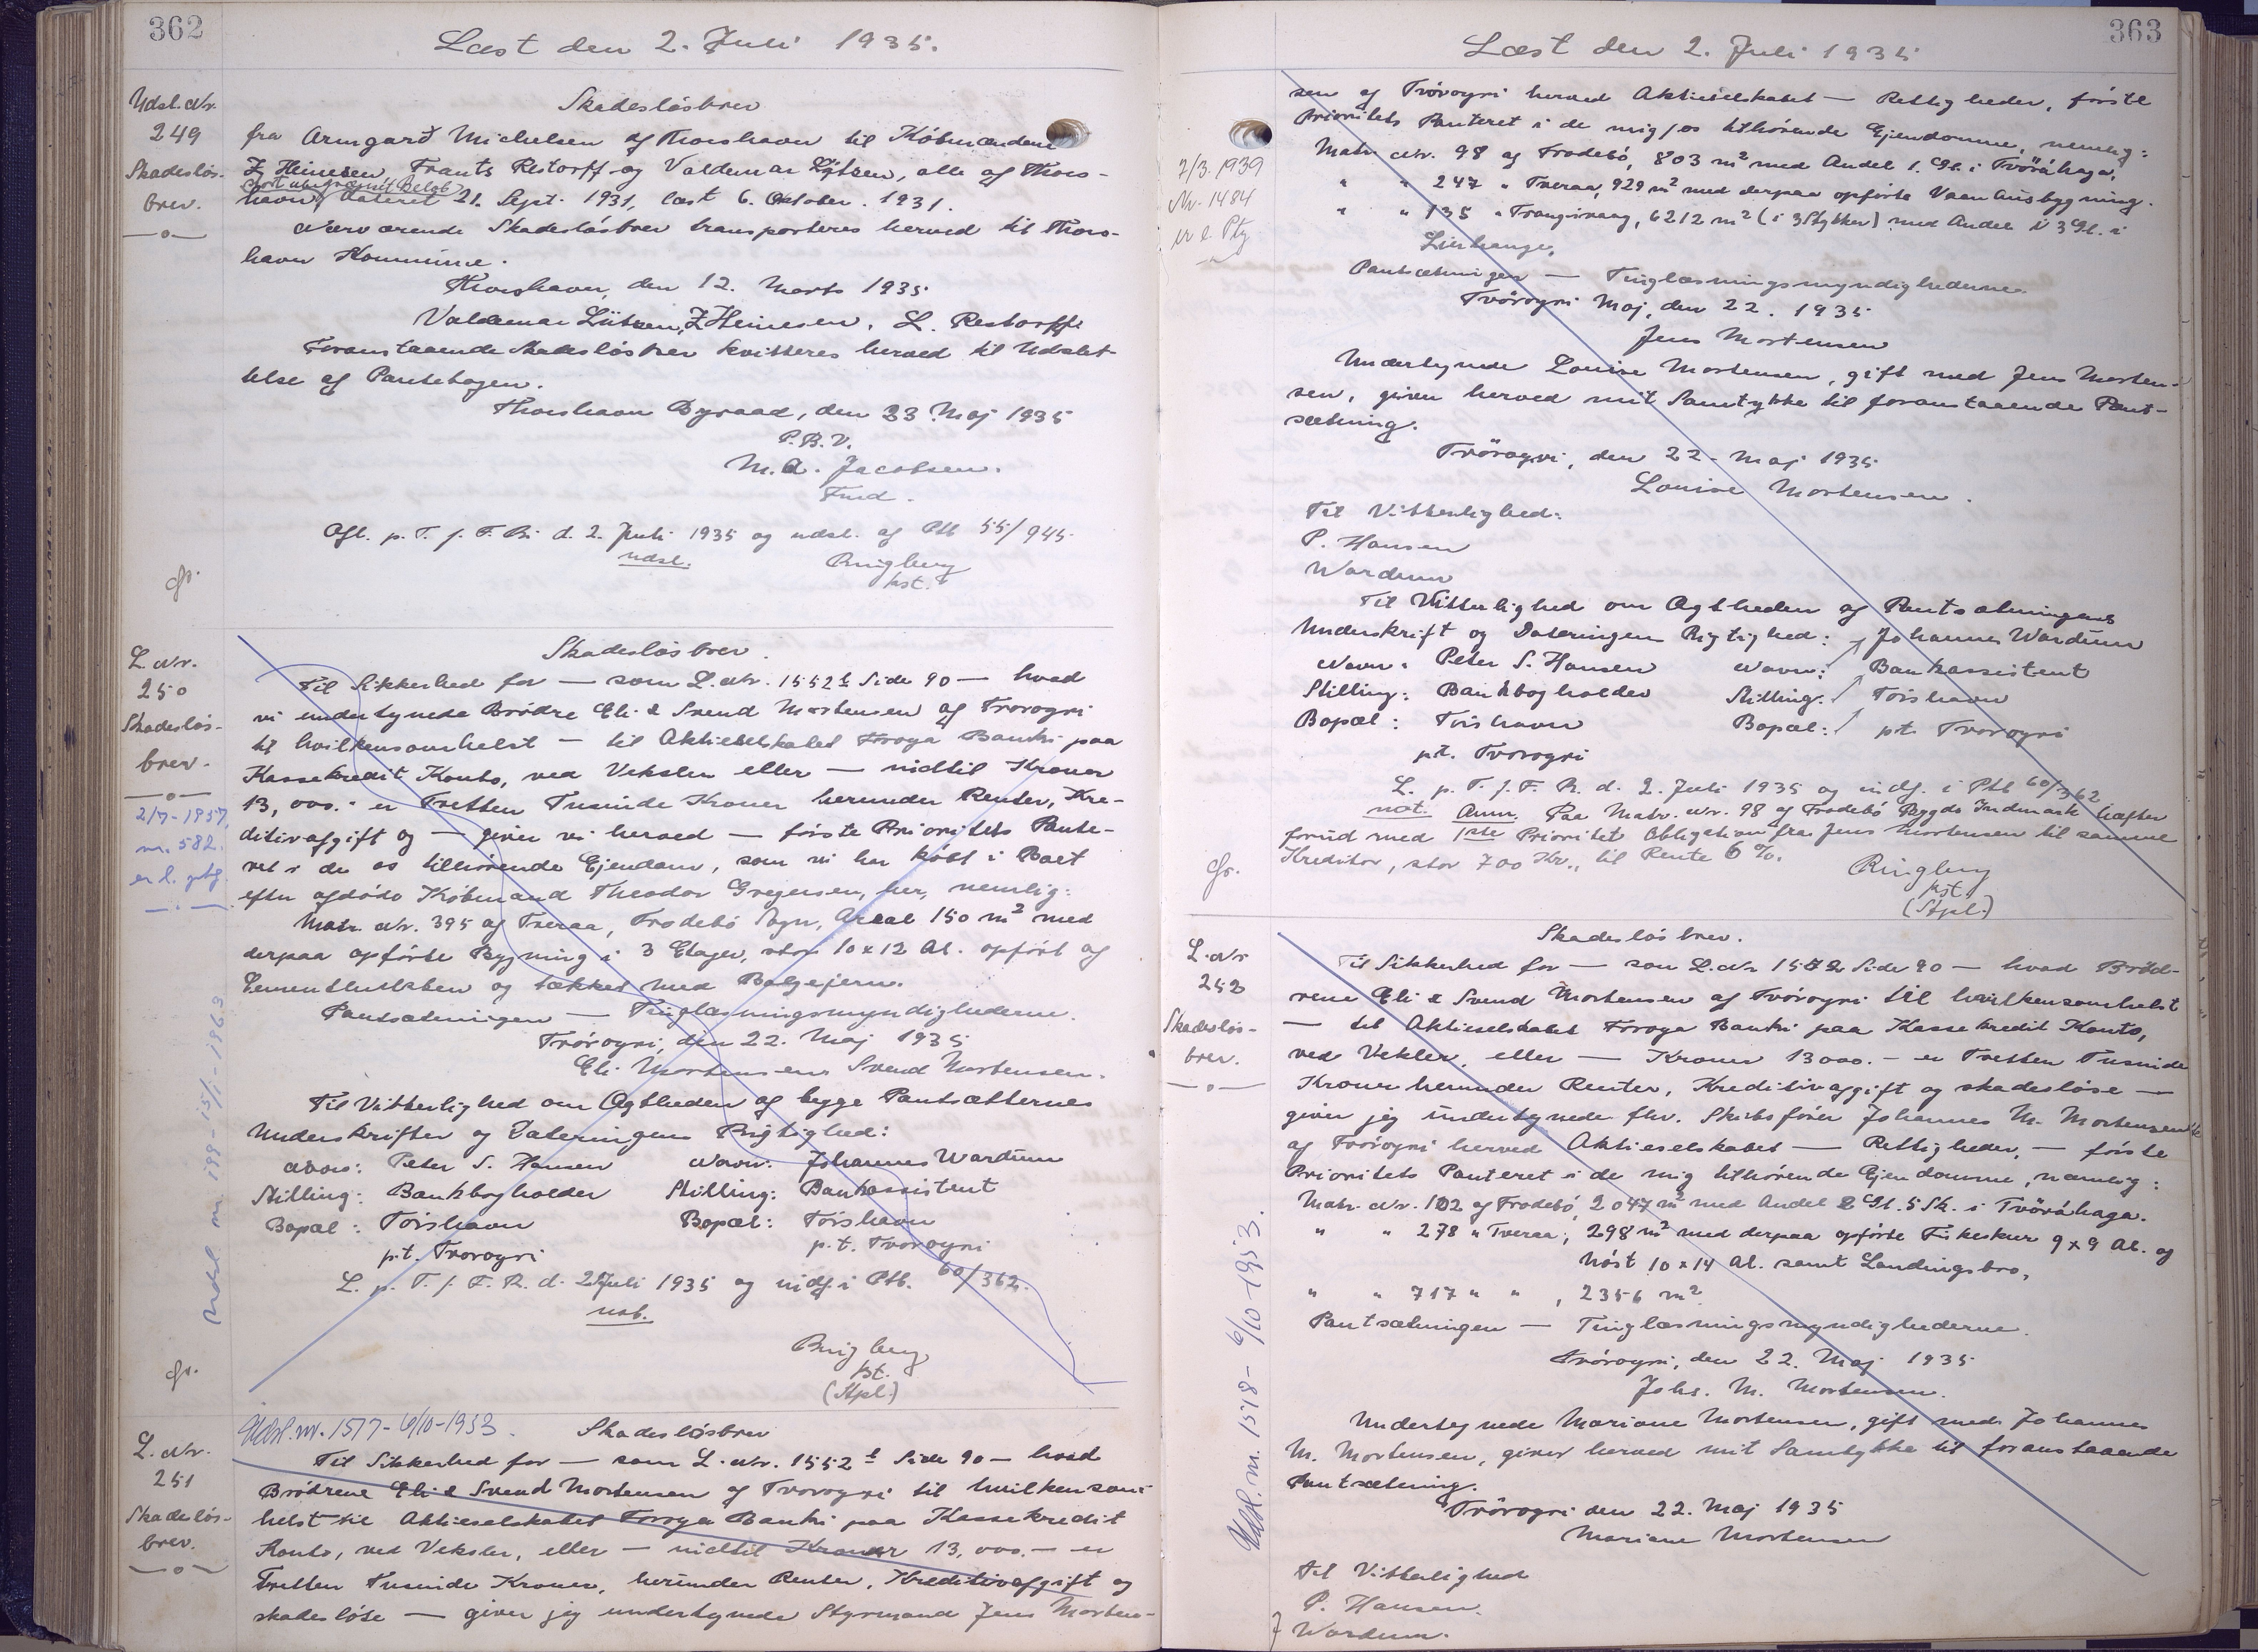 362
Læst den 2. Juli 1935.
Udsl. Nr.
249
Skadesløs-
brev.
Skadesløsbrev
fra Armgarð Michelsen af Thorshavn til Købmændene
Z Heinesen, Frants Restorff og Valdemar Lützen, alle af Thors-
stort ubegrænset Beløb
havn, dateret 21. Sept. 1931, læst 6. Oktober. 1931.
Nærværende Skadesløsbrev transporteres herved til Thors-
havn Kommune.
Thorshavn, den 12. Marts 1935
Valdemar Lützen, Z Heinesen, L. Restorff
Foranstaaende Skadesløsbrev kvitteres herved til Udslet-
telse af Pantebogen.
Thorshavn Byraad, den 23 Maj 1935
P.B.V.
M.A. Jacobsen.
Fmd.
Afl. p. T. f. F. Ri d. 2. Juli 1935 og udsl. af Ptb 55/945.
udsl.
Ringberg
kst.
gr.
L. Nr.
250
Skadesløs-
brev.
2/7-1957,
nr. 582.
er l. ptg.
Udsl. nr. 199-15/1-1963
Skadesløsbrev.
Til Sikkerhed for — som L. Nr. 1552 t Side 90 — hvad
vi undertegnede Brødre Eli & Svend Mortensen af Tvorogri
til hvilkensomhelst — til Aktieselskabet Føroya Banki paa
Kassekredit Konto, ved Veksler eller — indtil Kroner
13,000.- er Tretten Tusinde Kroner herunder Renter, Kre-
ditivafgift og — giver vi herved — første Prioritets Pante-
ret i de os tilhørende Ejendom, som vi har købt i Boet
efter afdøde Købmand Theodor Gregersen, her, nemlig:
Matr. Nr. 395 af Tveraa, Frodebø Sogn, Areal 150 m² med
derpaa opførte Bygning i 3 Etager, stor 10 x 12 Al. opført af
Cementblokken og tækket med Bølgejern.
Pantsætningen — Tinglæsningsmyndighederne.
Tvørogri, den 22. Maj 1935
Eli Mortensen Svend Mortensen.
Til Vitterlighed om Ægtheden af begge Pantsætternes
Underskrifter og Dateringens Rigtighed:
Navn: Peter S. Hansen Navn: Johannes Wardum
Stilling: Bankbogholder Stilling: Bankassistent
Bopæl: Torshavn Bopæl: Torshavn
pt. Tvorogri p.t. Tvorogri
L. p. T. f. F. R. d. 2 Juli 1935 og indf. i Ptb. 60/362.
not.
Ringberg
kst.
(Stpl.)
gr.
L. Nr.
251
Skadesløs-
brev.
Udsl. nr. 1577-6/10-1953.
Skadesløsbrev
Til Sikkerhed for — som L. Nr. 1552 t Side 90 — hvad
Brødrene Eli & Svend Mortensen af Tvorogri til hvilkensom-
helst til Aktieselskabet Føroya Banki paa Kassekredit
Konto, ved Veksler, eller — indtil Kroner 13,000.— er
Tretten Tusinde Kroner, herunder Renter, Kreditivafgift og
skadesløse — giver jeg undertegnede Styrmand Jens Morten-
363
Læst den 2. Juli 1935
2/3. 1939
Nr. 1484
er l. Ptg
sen af Tvørogri herved Aktieselskabet — Rettigheder, første
Prioritets Panteret i de mig/os tilhørende Ejendomme, nemlig:
Matr. Nr. 98 af Frodebø, 803 m² med Andel 1. Gl. i Tvöráhaga.
" " 247 " Tveraa, 929 m² med derpaa opførte Vaaningsbygning.
" " 135 " Trangisvaag, 6212 m² (i 3 Stykker) med Andel i 3 Gl. i
Pantsætningen — Tinglæsningsmyndighederne.
Tvörogri Maj, den 22. 1935
Jens Mortensen
Undertegnede Louise Mortensen, gift med Jens Morten-
sen, giver herved mit Samtykke til foranstaaende Pant-
sætning.
Tvörogri, den 22. Maj 1935
Louise Mortensen.
Til Vitterlighed:
P. Hansen
Wardum
Til Vitterlighed om Ægtheden af Pantsætningens
Underskrift og Dateringens Rigtighed: Johannes Wardum
Navn: Peter S. Hansen Navn: Bankassistent
Stilling: Bankbogholder Stilling: Torshavn
Bopæl: Torshavn Bopæl: pt. Tvorogri
pt. Tvorogri
L. p. T. f. F. R. d. 2. Juli 1935 og indf. i Ptb 60/362
not. Anm. Paa Matr. Nr. 98 af Frodebø Bygds Indmark hæfter
forud med 1ste Prioritet Obligation fra Jens Mortensen til samme
Kreditor, stor 700 Kr., til Rente 6 %.
Ringberg
kst.
(Stpl.)
gr.
L. Nr
252
Skadesløs-
brev.
Udsl. nr. 1578- 6/10-1953.
Skadesløsbrev.
Til Sikkerhed for — som L. Nr 1552 Side 90 — hvad Brød-
rene Eli & Svend Mortensen af Tvørogri til hvilkensomhelst
— til Aktieselskabet Føroya Banki paa Kassekredit Konto,
ved Veksler, eller — Kroner 13000.— er Tretten Tusinde
Kroner herunder Renter, Kreditivafgift og skadesløse —
giver jeg undertegnede fhv. Skibsfører Johannes M. Mortensen
af Tvørogri herved Aktieselskabet — Rettigheder, — første
Prioritets Panteret i de mig tilhørende Ejendomme, nemlig:
Matr. Nr. 102 af Frodebø, 2047 m² med Andel 2 Gl. 5 Sk. i Tvöráhaga.
" " 278 " Tveraa, 298 m² med derpaa opførte Fiskeskur 9 x 9 Al. og
Nøst 10 x 14 Al. samt Landingsbro,
" " 717 " " , 2356 m²
Pantsætningen — Tinglæsningsmyndighederne.
Tvørogri, den 22. Maj 1935
Johs. M. Mortensen.
Undertegnede Mariane Mortensen, gift med Johannes
M. Mortensen, giver herved mit Samtykke til foranstaaende
Pantsætning.
Tvörogri den 22. Maj 1935
Mariane Mortensen
Til Vitterlighed
P. Hansen.
J Wardum.